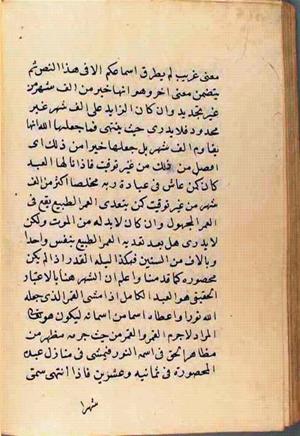 معنى غريب لم يطرق اسماعكم الا فى هذا النص ثم
يتضمن معنى اخر وهو انها خير من الف شهر من
غير تحديد وان كان الزايد على الف شهر غير
محدود فلا يدرى حيث ينتهى فما جعلها الله انها
تقاوم الف شهر بل جعلها خيرا من ذلك اى
افضل من ذلك من غير توقيت فاذا نالها العبد
كان كمن عاش فى عبادة ربه مخلصا اكثر من الف
شهر من غير توقيت كمن يتعدى العمر الطبيع يقع فى
العمر المجهول وان كان لا بد له من الموت ولكن
لا يدرى هل بعد تعديه العمر الطبيع بنفس واحد
وبالاف من السنين فهكذا ليلة القدر اذا لم يكن
محصورة كما قدمنا واعلم ان الشهر هنا بالاعتبار
الحقيقى هو العبد الكامل اذا مشى القمر الذى جعله
الله نورا واعطاه اسما من اسمائه ليكون هو تعالى
المراد لا جرم القمر والقمر من حيث جرمه مظهر من
مظاهر الحق فى اسمه النور فيمشى فى منازل عبده
المحصورة فى ثمانية وعشرين فاذا انتهى سمى
شهرا